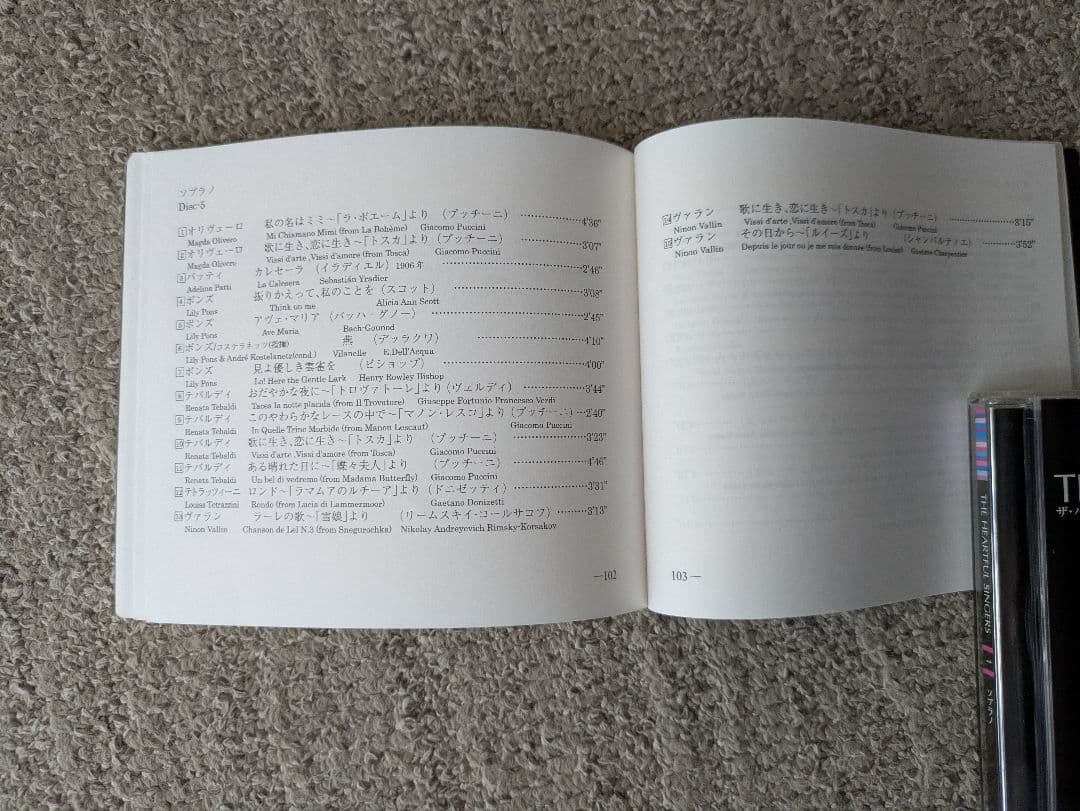 ソプラノ
Disc-5
1 オリヴェーロ 私の名はミミ〜「ラ・ボエーム」より (プッチーニ) ……………4'36"
Magda Olivero Mi Chiamano Mimi (from La Bohème) Giacomo Puccini
2 オリヴェーロ 歌に生き、恋に生き〜「トスカ」より (プッチーニ) ……………3'07"
Magda Olivero Vissi d'arte ,Vissi d'amore (from Tosca) Giacomo Puccini
3 パッティ カレセーラ (イラディエル) 1906年 ……………2'46"
Adelina Patti La Calesera Sebastián Yradier
4 ポンズ 振りかえって、私のことを (スコット) ……………3'08"
Lily Pons Think on me Alicia Ann Scott
5 ポンズ アヴェ・マリア (バッハ-グノー) ……………2'45"
Lily Pons Ave Maria Bach-Gounod
6 ポンズ/コステラネッツ(指揮) 燕 (デッラクワ) ……………4'10"
Lily Pons & André Kostelanetz(cond.) Vilanelle E.Dell'Acqua
7 ポンズ 見よ優しき雲雀を (ビショップ) ……………4'00"
Lily Pons Lo! Here the Gentle Lark Henry Rowley Bishop
8 テバルディ おだやかな夜に〜「トロヴァトーレ」より (ヴェルディ) ……………3'44"
Renata Tebaldi Tacea la notte placida (from Il Trovatore) Giuseppe Fortunio Francesco Verdi
9 テバルディ このやわらかなレースの中で〜「マノン・レスコ」より (プッチーニ) …2'40"
Renata Tebaldi In Quelle Trine Morbide (from Manon Lescaut) Giacomo Puccini
10 テバルディ 歌に生き、恋に生き〜「トスカ」より (プッチーニ) ……………3'23"
Renata Tebaldi Vissi d'arte ,Vissi d'amore (from Tosca) Giacomo Puccini
11 テバルディ ある晴れた日に〜「蝶々夫人」より (プッチーニ) ……………4'46"
Renata Tebaldi Un bel di vedremo (from Madama Butterfly) Giacomo Puccini
12 テトラッツィーニ ロンド〜「ラマムアのルチーア」より (ドニゼッティ) ……………3'31"
Louisa Tetrazzini Rondo (from Lucia di Lammermoor) Gaetano Donizetti
13 ヴァラン ラーレの歌〜「雪娘」より (リームスキイ・コールサコフ) ………3'13"
Ninon Vallin Chanson de Lel N.3 (from Snegurochka) Nikolay Andreyevich Rimsky-Korsakov
—102
14 ヴァラン 歌に生き、恋に生き〜「トスカ」より (プッチーニ) ……………3'15"
Ninon Vallin Vissi d'arte ,Vissi d'amore (from Tosca) Giacomo Puccini
15 ヴァラン その日から〜「ルイーズ」より (シャンパルティエ) ………3'52"
Ninon Vallin Depuis le jour ou je me suis donnée (from Louise) Gustave Charpentier
103—
THE HEARTFUL SINGERS 1 ソプラノ